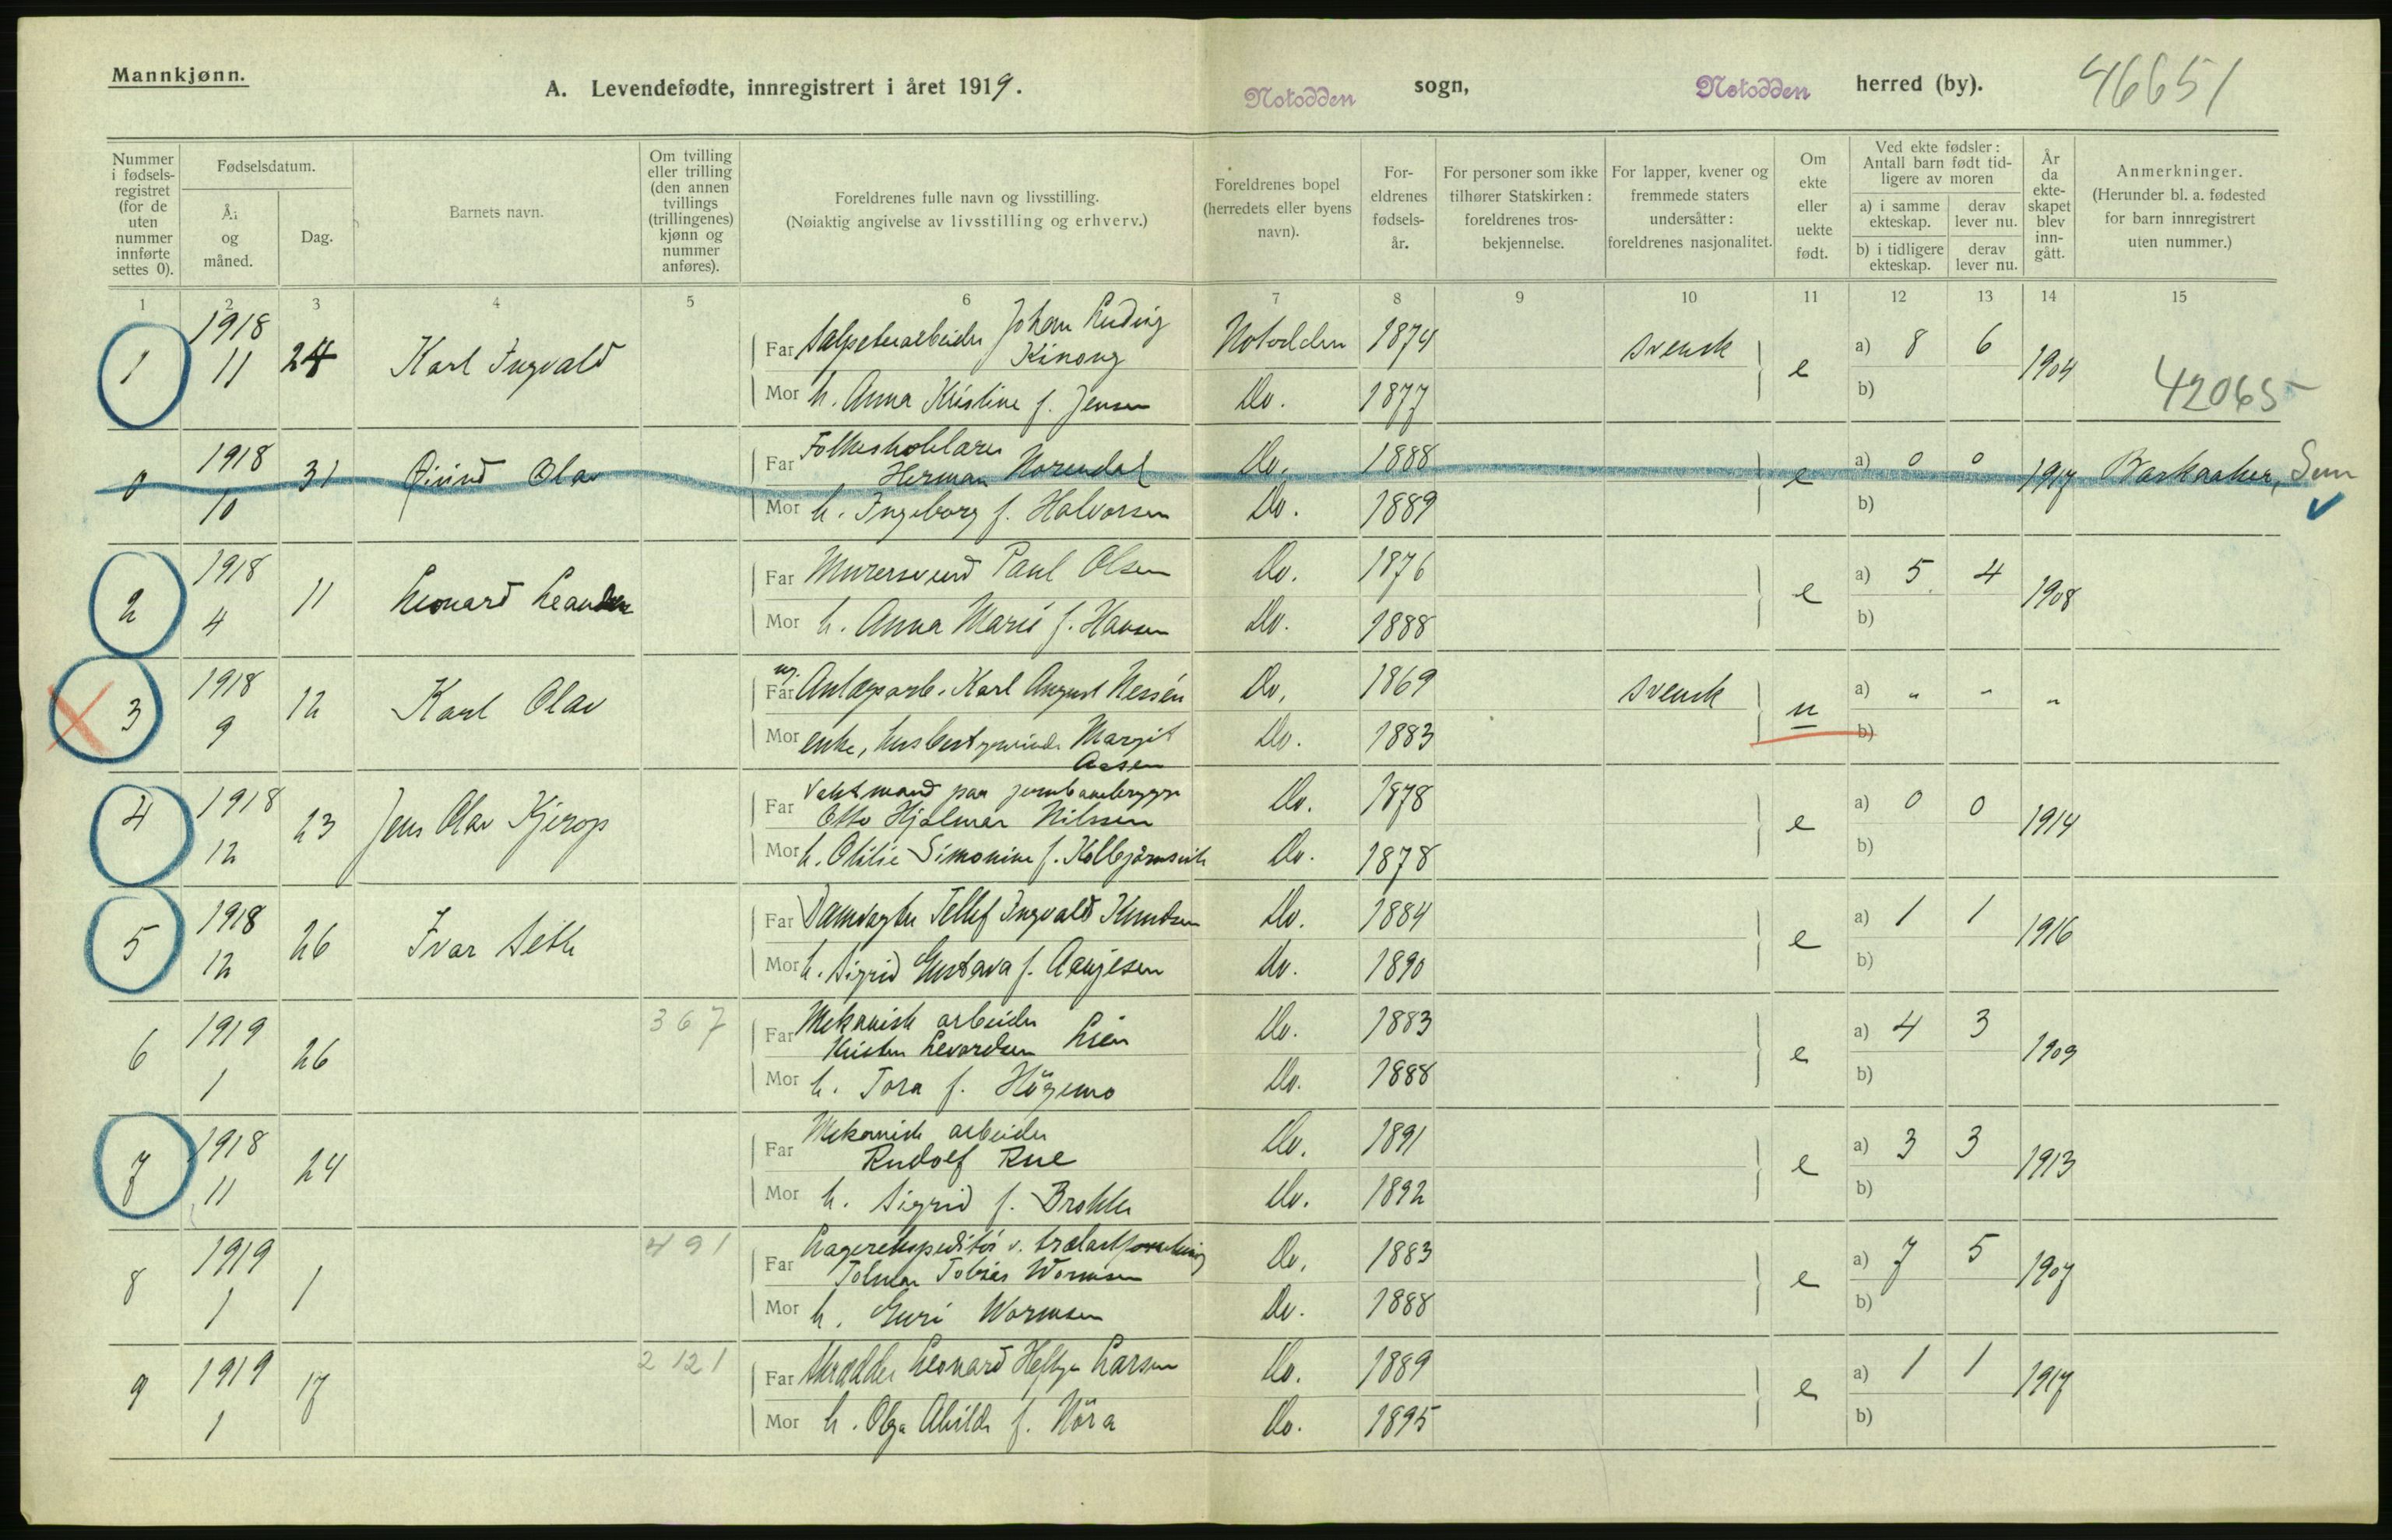 Mannkjønn.
A. Levendefødte, innregistrert i året 1919.
Notodden sogn,
Notodden herred (by).
46651
Nummer i fødsels-registret (for de uten nummer innførte settes 0).
Fødselsdatum.
År og måned.
Dag.
Barnets navn.
Om tvilling eller trilling (den annen tvillings (trillingenes) kjønn og nummer anføres).
Foreldrenes fulle navn og livsstilling.
(Nøiaktig angivelse av livsstilling og erhverv.)
Foreldrenes bopel (herredets eller byens navn).
For-eldrenes fødsels-år.
For personer som ikke tilhører Statskirken: foreldrenes tros-bekjennelse.
For lapper, kvener og fremmede staters undersåtter: foreldrenes nasjonalitet.
Om ekte eller uekte født.
Ved ekte fødsler: Antall barn født tid-ligere av moren
a) i samme ekteskap.
derav lever nu.
b) i tidligere ekteskap.
derav lever nu.
År da ekte-skapet blev inn-gått.
Anmerkninger.
(Herunder bl. a. fødested for barn innregistrert uten nummer.)
1 2 3 4 5 6 7 8 9 10 11 12 13 14 15
1 1918 11 24 Karl Ingvald
Far Salpeterarbeider Johan Ludvig Notodden 1874 svensk e a) 8 6 1904
Mor h. Anna Kristine f. Jensen Do. 1877 b)
42065
0 1918 10 31 Øivind Olav
Far Folkeskolelærer Herman Norendal Do. 1888 e a) 0 0 1917 Sem
Mor h. Ingeborg f. Halvorsen Do. 1889 b)
2 1918 4 11 Leonard Leander
Far Murersvend Paul Olsen Do. 1876 e a) 5 4 1908
Mor h. Anna Marie f. Hansen Do. 1888 b)
3 1918 9 12 Karl Olav
Far ug. Anlægsarb. Karl August Nessén Do. 1869 svensk u a) " " "
Mor enke, Margit Aasen Do. 1883 b)
4 1918 12 23 Jens Olav Kjerop
Far Vaktmand paa jernbanebrygge Otto Hjalmar Nilssen Do. 1878 e a) 0 0 1914
Mor h. Otilie Simonine f. Do. 1878 b)
5 1918 12 26 Ivar Seth
Far Damvogter Tellef Ingvald Knudsen Do. 1884 e a) 1 1 1916
Mor h. Sigrid Gustava f. Aanjesen Do. 1890 b)
6 1919 1 26 367
Far Mekanisk arbeider Kristen Levordsen Lien Do. 1883 e a) 4 3 1909
Mor h. Tora f. Högemo Do. 1888 b)
7 1918 11 24
Far Mekanisk arbeider Rudolf Rue Do. 1891 e a) 3 3 1913
Mor h. Sigrid f. Do. 1892 b)
8 1919 1 1 491
Far Lagerekspeditör v. Tobias Wormsen Do. 1883 e a) 7 5 1907
Mor h. Guri Wormsen Do. 1888 b)
9 1919 1 17 2 121
Far Skrædder Leonard Larsen Do. 1889 e a) 1 1 1917
Mor h. Olga Alvilde f. Nöra Do. 1895 b)